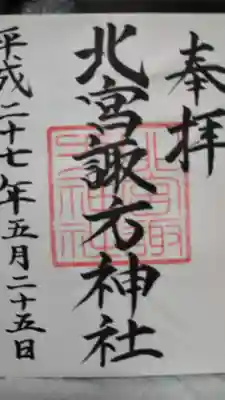 奉拝
北宮諏方神社
平成二十七年五月二十五日